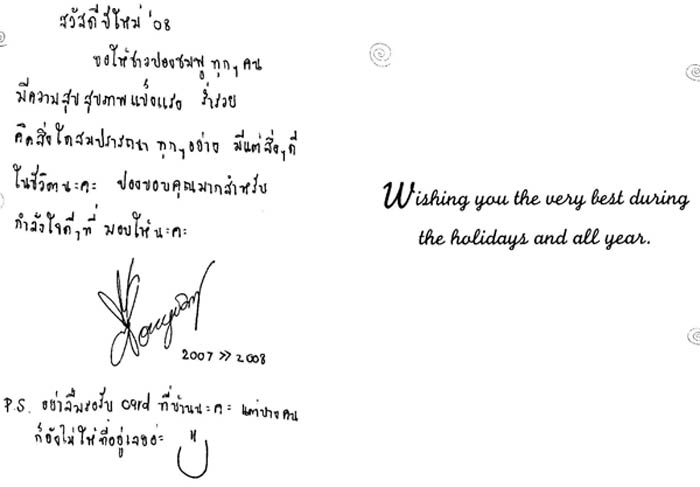 สวัสดีปีใหม่ '08
ขอให้ชาวปองชมพู ทุกๆ คน
มีความสุข สุขภาพแข็งแรง ร่ำรวย
คิดสิ่งใดสมปรารถนา ทุกๆ อย่าง มีแต่สิ่งๆ ดี
ในชีวิตนะคะ ปองขอบคุณมากสำหรับ
กำลังใจดีๆ ที่ มอบให้นะคะ
2007 >> 2008
P.S. อย่าลืมรอรับ card ที่บ้านนะคะ แต่บางคน
ก็ยังไม่ให้ที่อยู่เลยอ่ะ
Wishing you the very best during
the holidays and all year.